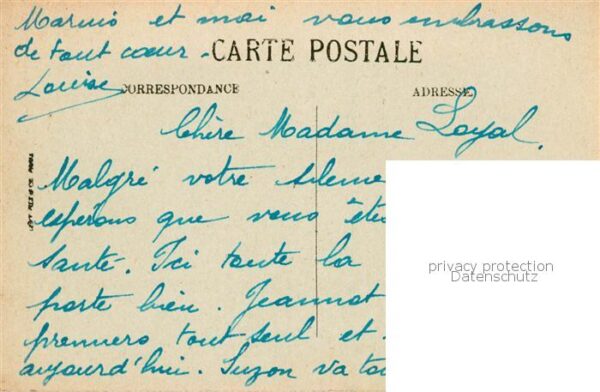 Marius et moi vous embrassons
de tout cœur.
Louise
CARTE POSTALE
CORRESPONDANCE
ADRESSE
Chère Madame Loyal,
Malgré votre silence
espérons que vous êtes
santé. Ici toute la
porte bien. Jeannot
premiers tout seul et
aujourd'hui. Suzon va
privacy protection
Datenschutz